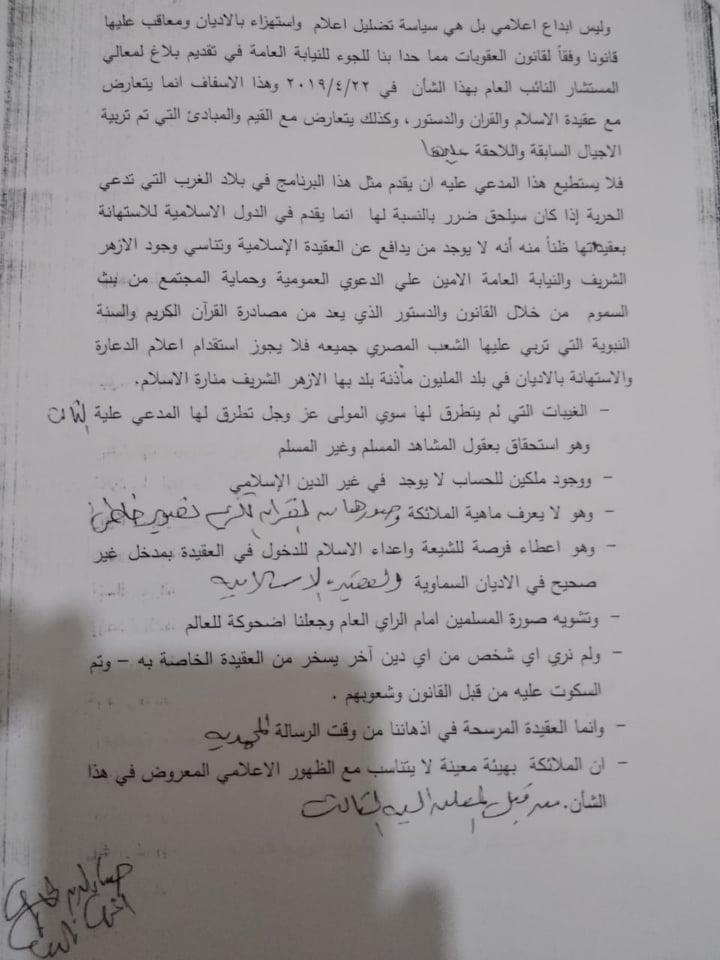 وليس ابداع اعلامي بل هي سياسة تضليل اعلام واستهزاء بالاديان ومعاقب عليها
قانونا وفقاً لقانون العقوبات مما حدا بنا للجوء للنيابة العامة في تقديم بلاغ لمعالي
المستشار النائب العام بهذا الشأن في ٢٠١٩/٤/٢٢ وهذا الاسفاف انما يتعارض
مع عقيدة الاسلام والقران والدستور ، وكذلك يتعارض مع القيم والمبادئ التي تم تربية
الاجيال السابقة واللاحقة عليها
فلا يستطيع هذا المدعي عليه ان يقدم مثل هذا البرنامج في بلاد الغرب التي تدعي
الحرية إذا كان سيلحق ضرر بالنسبة لها انما يقدم في الدول الاسلامية للاستهانة
بعقيداتها ظناً منه أنه لا يوجد من يدافع عن العقيدة الإسلامية وتناسي وجود الازهر
الشريف والنيابة العامة الامين علي الدعوي العمومية وحماية المجتمع من بث
السموم من خلال القانون والدستور الذي يعد من مصادرة القرآن الكريم والسنة
النبوية التي تربي عليها الشعب المصري جميعه فلا يجوز استقدام اعلام الدعارة
والاستهانة بالاديان في بلد المليون مأذنة بلد بها الازهر الشريف منارة الاسلام.
- الغيبات التي لم يتطرق لها سوي المولى عز وجل تطرق لها المدعي علية الثالث
وهو استحقاق بعقول المشاهد المسلم وغير المسلم
- ووجود ملكين للحساب لا يوجد في غير الدين الإسلامي
- وهو لا يعرف ماهية الملائكة وصورها تصوير خاطئ
- وهو اعطاء فرصة للشيعة واعداء الاسلام للدخول في العقيدة بمدخل غير
صحيح في الاديان السماوية والعقيدة الاسلامية
- وتشويه صورة المسلمين امام الراي العام وجعلنا اضحوكة للعالم
- ولم نري اي شخص من اي دين آخر يسخر من العقيدة الخاصة به – وتم
السكوت عليه من قبل القانون وشعوبهم .
- وانما العقيدة المرسحة في اذهاننا من وقت الرسالة المحمدية
- ان الملائكة بهيئة معينة لا يتناسب مع الظهور الاعلامي المعروض في هذا
الشأن. من قبل المعلن اليه الثالث